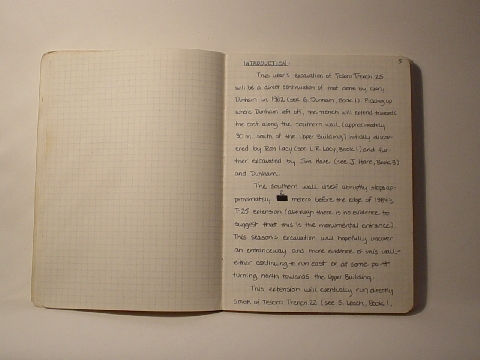 5
INTRODUCTION:
This year's excavation of Tesoro Trench 25
will be a direct continuation of that done by Gary
Dunham in 1982 (see G. Dunham, Book 1). Picking up
where Dunham left off, the trench will extend towards
the east along the southern wall (approximately
30 m. south of the Upper Building) initially discov-
ered by Ron Lacy (see L.R. Lacy, Book 1) and fur-
ther excavated by Jim Hare (see J. Hare, Book 3)
and Dunham.
The southern wall itself abruptly stops ap-
proximately meters before the edge of
T-25 extension (although there is no evidence to
suggest that this is the monumental entrance).
This season's excavation will hopefully uncover
an entranceway and more evidence of this wall-
either continuing to run east or at some point
turning north towards the Upper Building.
This extension will eventually run directly
south of Tesoro Trench 22 (see S. Leach, Book 1,